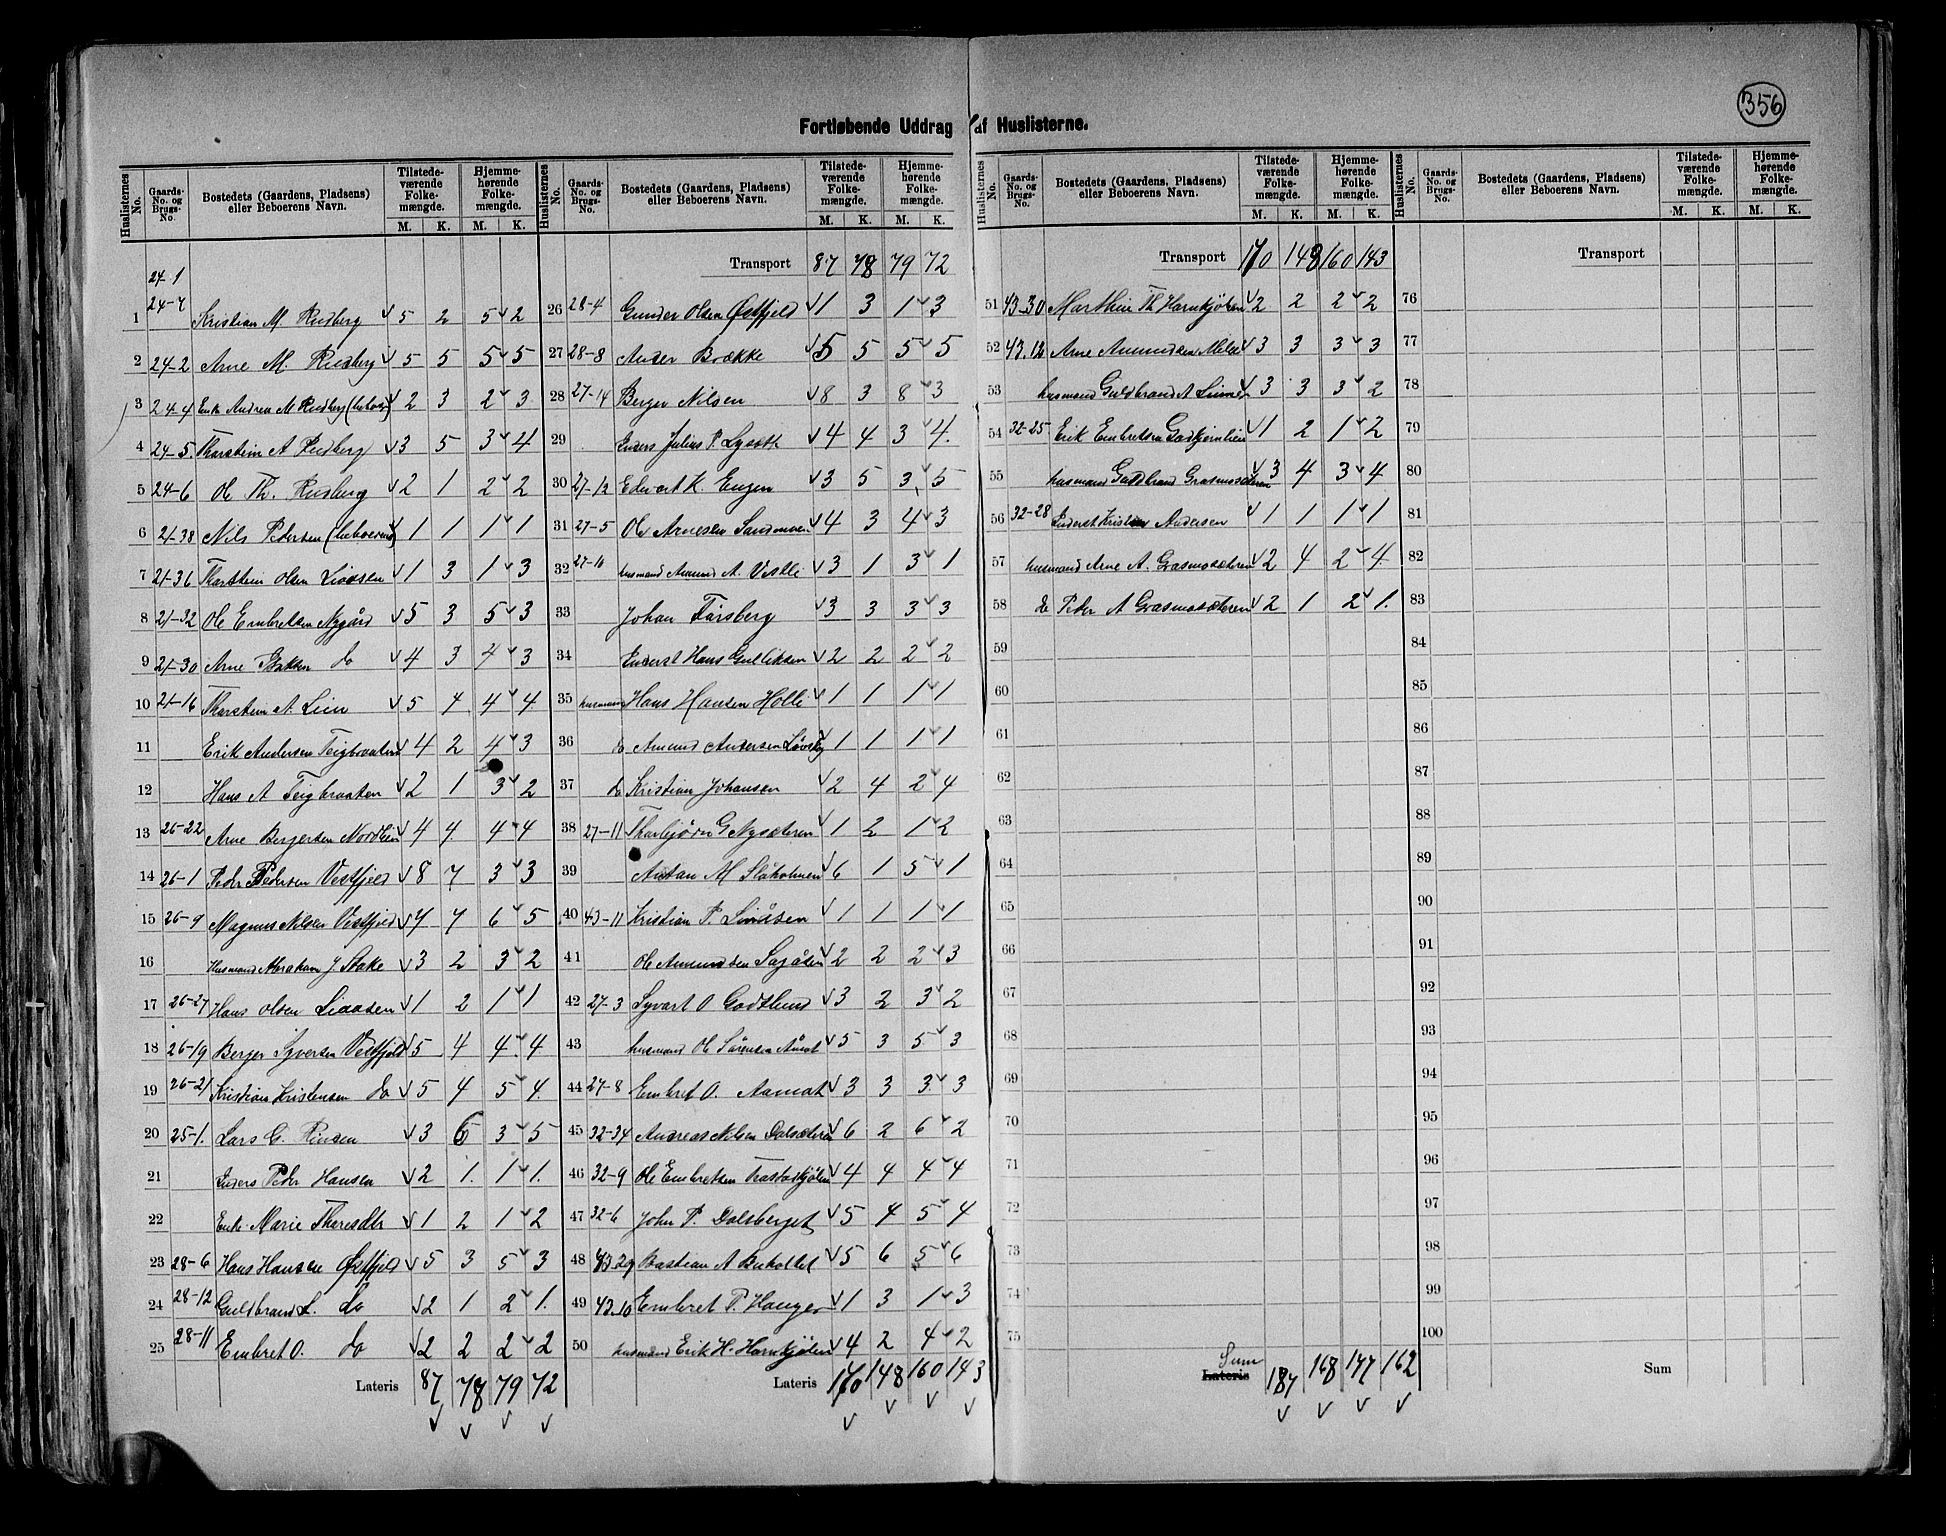 356
Fortløbende Uddrag af Huslisterne.
Huslisternes No. | Gaards-No. og Brugs-No. | Bostedets (Gaardens, Pladsens) eller Beboerens Navn. | Tilstedeværende Folkemængde. M. K. | Hjemmehørende Folkemængde. M. K.
24-1
1 24-7 Kristian M. Rudberg 5 2 5 2
2 24-2 Arne M. Rudberg 5 5 5 5
3 24-4 Enke Andrea M Rudberg 2 3 2 3
4 24-5. Thorstein A Rudberg 3 5 3 4
5 24-6 Ole Th. Rudberg 2 1 2 2
6 21-38 Nils Pedersen 1 1 1 1
7 21-36 Thorstein Olsen Liaasen 1 3 1 3
8 21-32 Ole Embretsen Nygård 5 3 5 3
9 21-30 Arne Bakken do 4 3 4 3
10 21-16 Thorstein A. Lien 5 4 4 4
11 Erik Andersen Teigbraaten 4 2 4 3
12 Hans A Teigbraaten 2 1 3 2
13 26-22 Arne Bergersen Nordlien 4 4 4 4
14 26-1 Peder Pedersen Vestfjeld 8 7 3 3
15 26-9 Magnus Nilsen Vestfjeld 7 7 6 5
16 Husmand Abraham J Stake 3 2 3 2
17 26-27 Hans Olsen Liaasen 1 2 1 1
18 26-19 Berger Syversen Vestfjeld 5 4 4 4
19 26-21 Kristian Kristensen do 5 4 5 4
20 25-1. Lars G. 3 6 3 5
21 Inders Peder Hansen 2 1. 1 1.
22 Enke Marie Theresdtr 1 2 1 2
23 28-6 Hans Hansen Østfjeld 5 3 5 3
24 28-12 Guldbrand L. do 2 1 2 1.
25 28-11 Embret O. do 2 2 2 2
Lateris 87 78 79 72
Transport 87 78 79 72
26 28-4 Gunder Olsen Østfjeld 1 3 1 3
27 28-8 Ander Brække 5 5 5 5
28 27-14 Berger Nilsen 8 3 8 3
29 Inders Julius P. 4 4 3 4.
30 27-12 Edvart K. Engen 3 5 3 5
31 27-5 Ole Arnesen Sandmoen 4 3 4 3
32 27-10 husmand Amund A. Veslli 3 1 3 1
33 Johan Forsberg 3 3 3 3
34 Inderst Hans Gulliksen 2 2 2 2
35 husmand Hans Hansen Holli 1 1 1 1
36 do Amund Andersen 1 1 1 1
37 do Kristian Johansen 2 4 2 4
38 27-11 Thorbjørn G Nysæteren 1 2 1 2
39 Anton M Slåholmen 6 1 5 1
40 43-11 Kristian P. Liaasen 1 1 1 1
41 Ole Amundsen Sagåsen 2 2 2 3
42 27-3 Syvert O Godtlund 3 2 3 2
43 husmand Ole Sørensen Åmot 5 3 5 3
44 27-8 Embret O. Aamot 3 3 3 3
45 32-34 Andreas Nilsen Dalsæteren 6 2 6 2
46 32-9 Ole Embretsen 4 4 4 4
47 32-6 John P. Dalsberget 5 4 5 4
48 43 29 Bastian A Bukollet 5 6 5 6
49 43-10 Embret P. Hanger 1 3 1 3
50 husmand Erik H. Hornkjølen 4 2 4 2
Lateris 170 148 160 143
Transport 170 148 160 143
51 43-30 Marthin Th Hornkjølen 2 2 2 2
52 43.12 Arne Amundsen 3 3 3 3
53 husmand Guldbrand A 3 3 3 2
54 32-25 Erik Embretsen 1 2 1 2
55 husmand Guldbrand Grasmosæteren 3 4 3 4
56 32-28 Inderst Kristian Andersen 1 1 1 1
57 husmand Arne A. Grasmosæteren 2 4 2 4.
58 do Peder A Grasmosæteren 2 1 2 1.
59
60
61
62
63
64
65
66
67
68
69
70
71
72
73
74
75
Lateris Sum 187 168 177 162
Transport
76
77
78
79
80
81
82
83
84
85
86
87
88
89
90
91
92
93
94
95
96
97
98
99
100
Sum